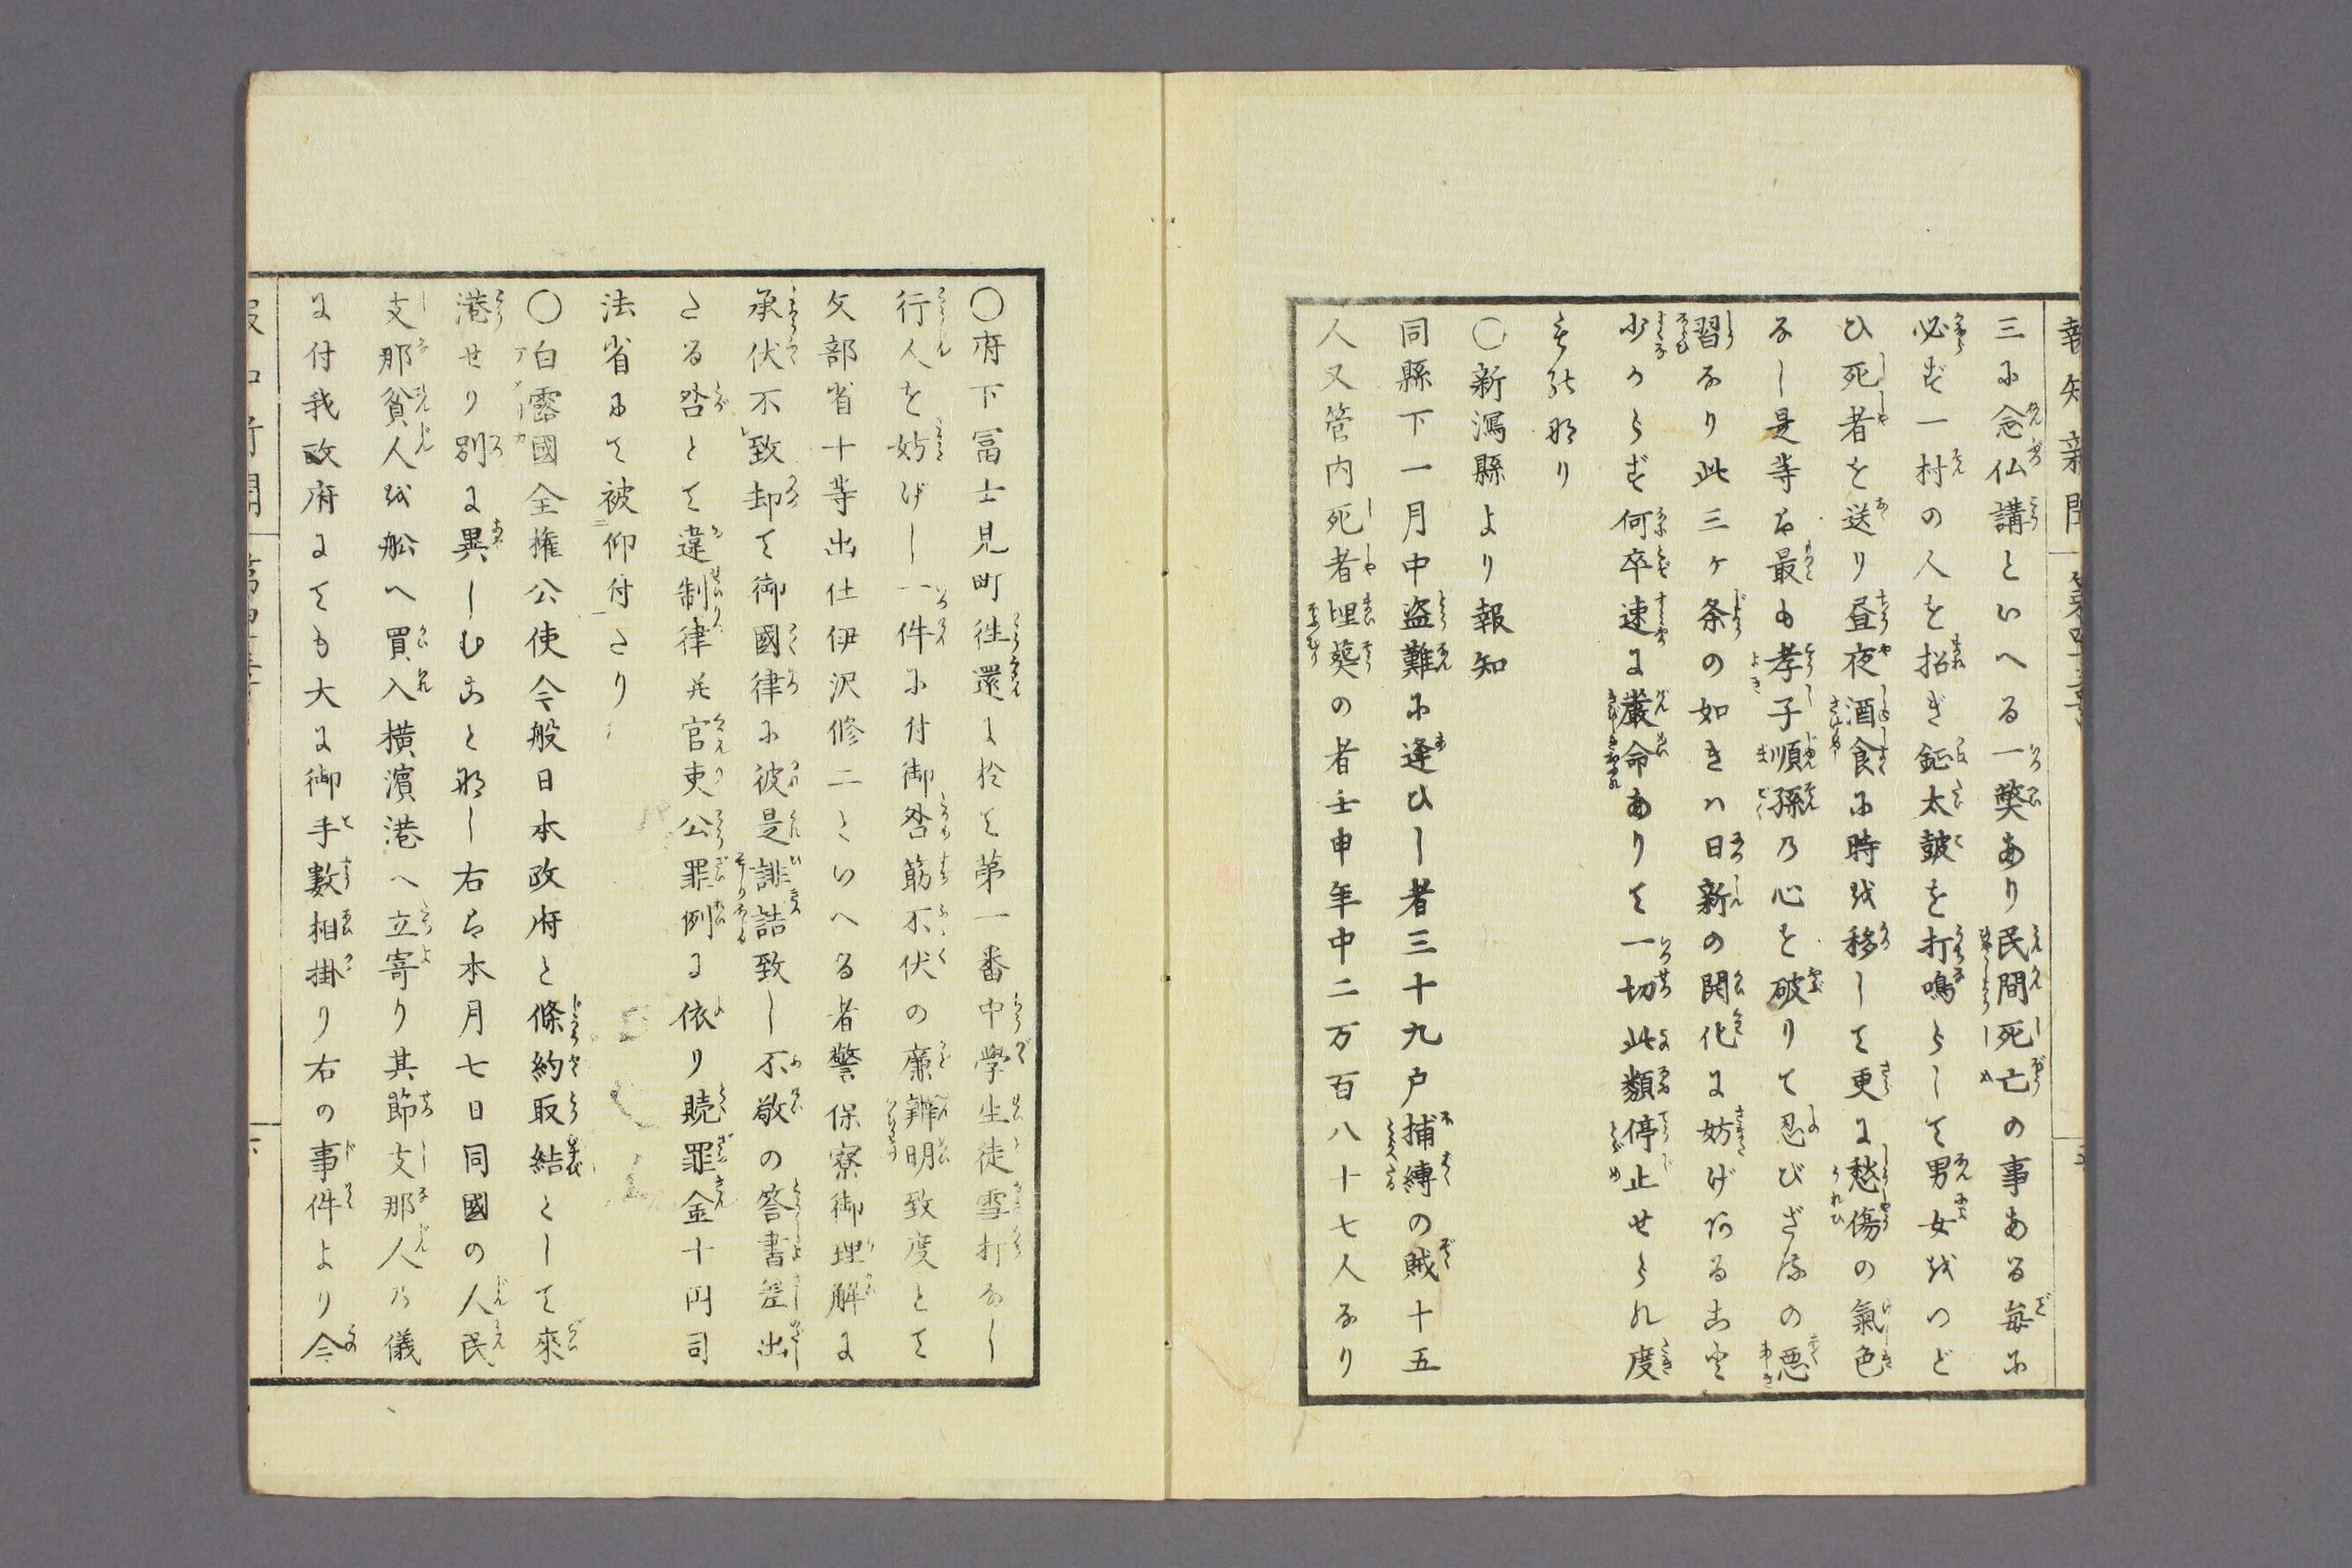 報知新聞 第四十三号 五
三に念仏講といへる一獘あり民間死亡の事ある毎に
必ず一村の人を招ぎ鉦太皷を打鳴らして男女をつど
ひ死者を送り昼夜酒食に時を移して更に愁傷の氣色
なし是等は最も孝子順孫の心を破りて忍びざるの悪
習なり此三ヶ条の如きハ日新の開化に妨げあること
少からず何卒速に嚴命ありて一切此類停止せられ度
き段なり
〇新潟縣より報知
同縣下一月中盗難に逢ひし者三十九戸捕縛の賊十五
人又管内死者埋葬の者壬申年中二万百八十七人なり
〇府下冨士見町徃還に於て第一番中學生徒雪打なし
行人を妨げし一件に付御咎筋不伏の廉辨明致度とて
文部省十等出仕伊沢修二といへる者警保寮御理解に
承伏不致却て御國律に彼是誹誥致し不敬の答書差出
さる咎とて違制律并官吏公罪例に依り贖罪金十円司
法省にて被仰付さり
〇白露國全権公使今般日本政府と條約取結として來
港せり別に異しむこと那し右は本月七日同國の人民
支那貧人を舩へ買入横濱港へ立寄り其節支那人の儀
に付我政府にても大に御手數相掛り右の事件より今
報知新聞 六